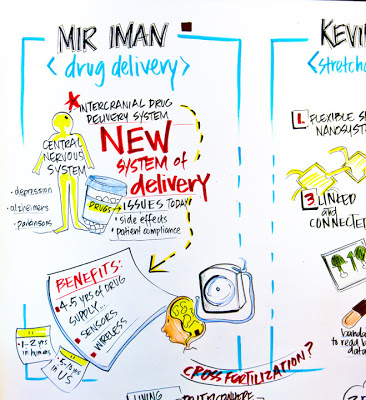 MIR IMAN
<drug delivery>
INTERCRANIAL DRUG
DELIVERY SYSTEM
CENTRAL
NERVOUS
SYSTEM
NEW
SYSTEM of
delivery
• depression
• alzheimers
• parkinsons
DRUGS
ISSUES TODAY
• side effects
• patient compliance
BENEFITS:
• 4-5 yrs of DRUG
SUPPLY
• SENSORS
• WIRELESS
1-2 yrs
in humans
5-10 yrs
in US
KEVI
<stretch
1. FLEXIBLE S
NANOSYST
3 LINKED
and
CONNECTE
banda
to read b
data
CROSS FERTILIZATION?
LIVING